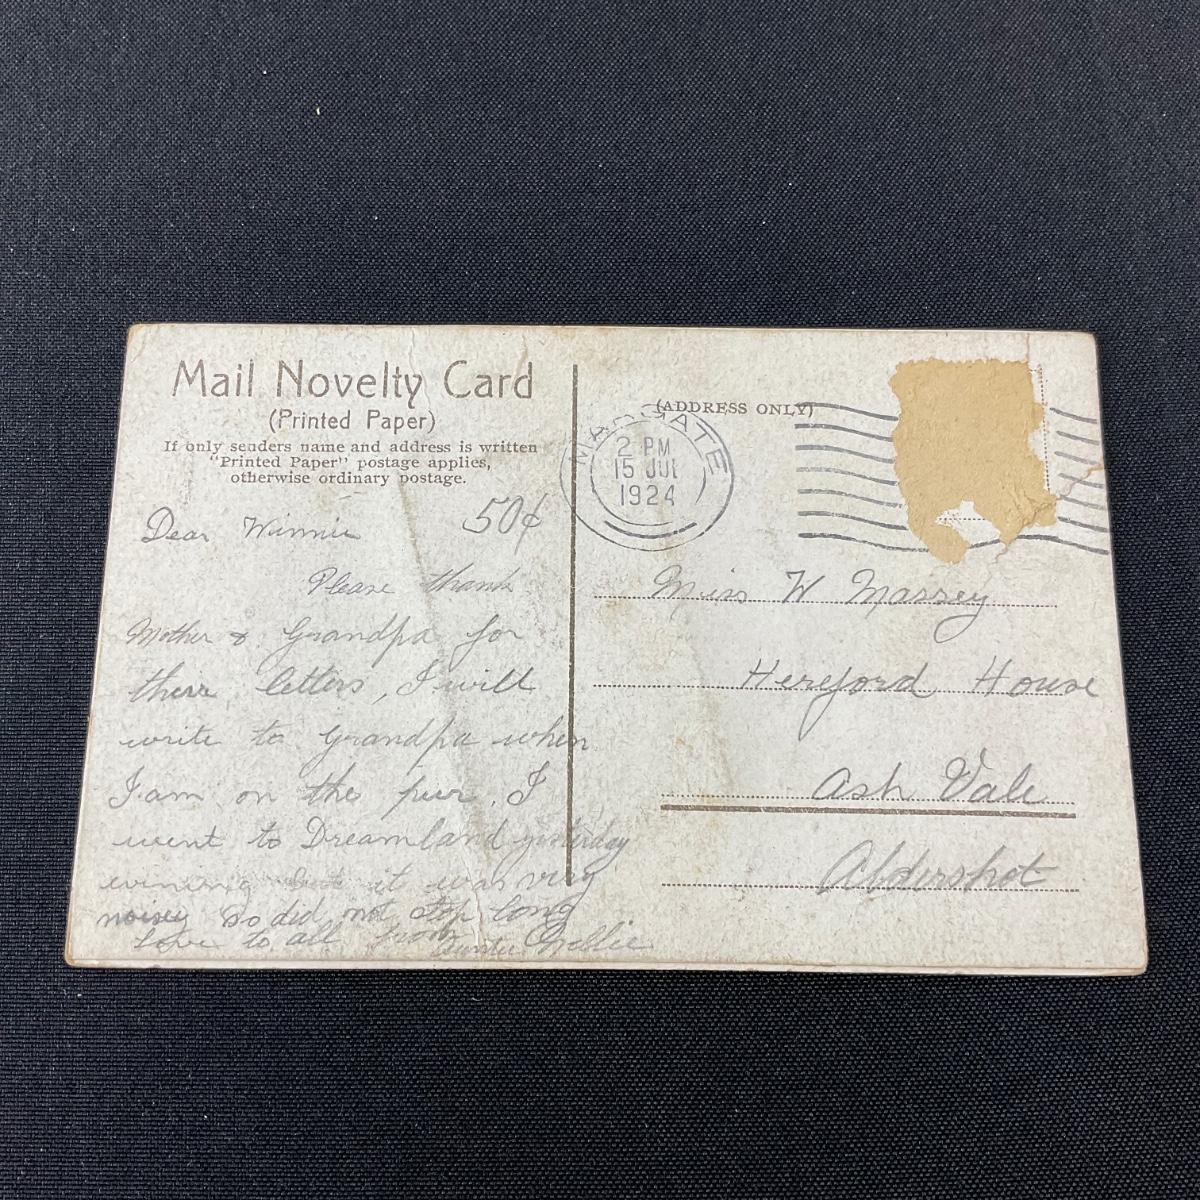 Mail Novelty Card
(Printed Paper)
If only senders name and address is written
"Printed Paper" postage applies,
otherwise ordinary postage.
50¢
Dear Winnie
Please thank
Mother & Grandpa for
their letters, I will
write to Grandpa when
I am on the pier. I
went to Dreamland yesterday
evening but it was very
noisey so did not stop long
Love to all from Auntie Nellie
(ADDRESS ONLY)
MARGATE
2 PM
15 JUL
1924
Miss W Massey
Hereford House
Ash Vale
Aldershot